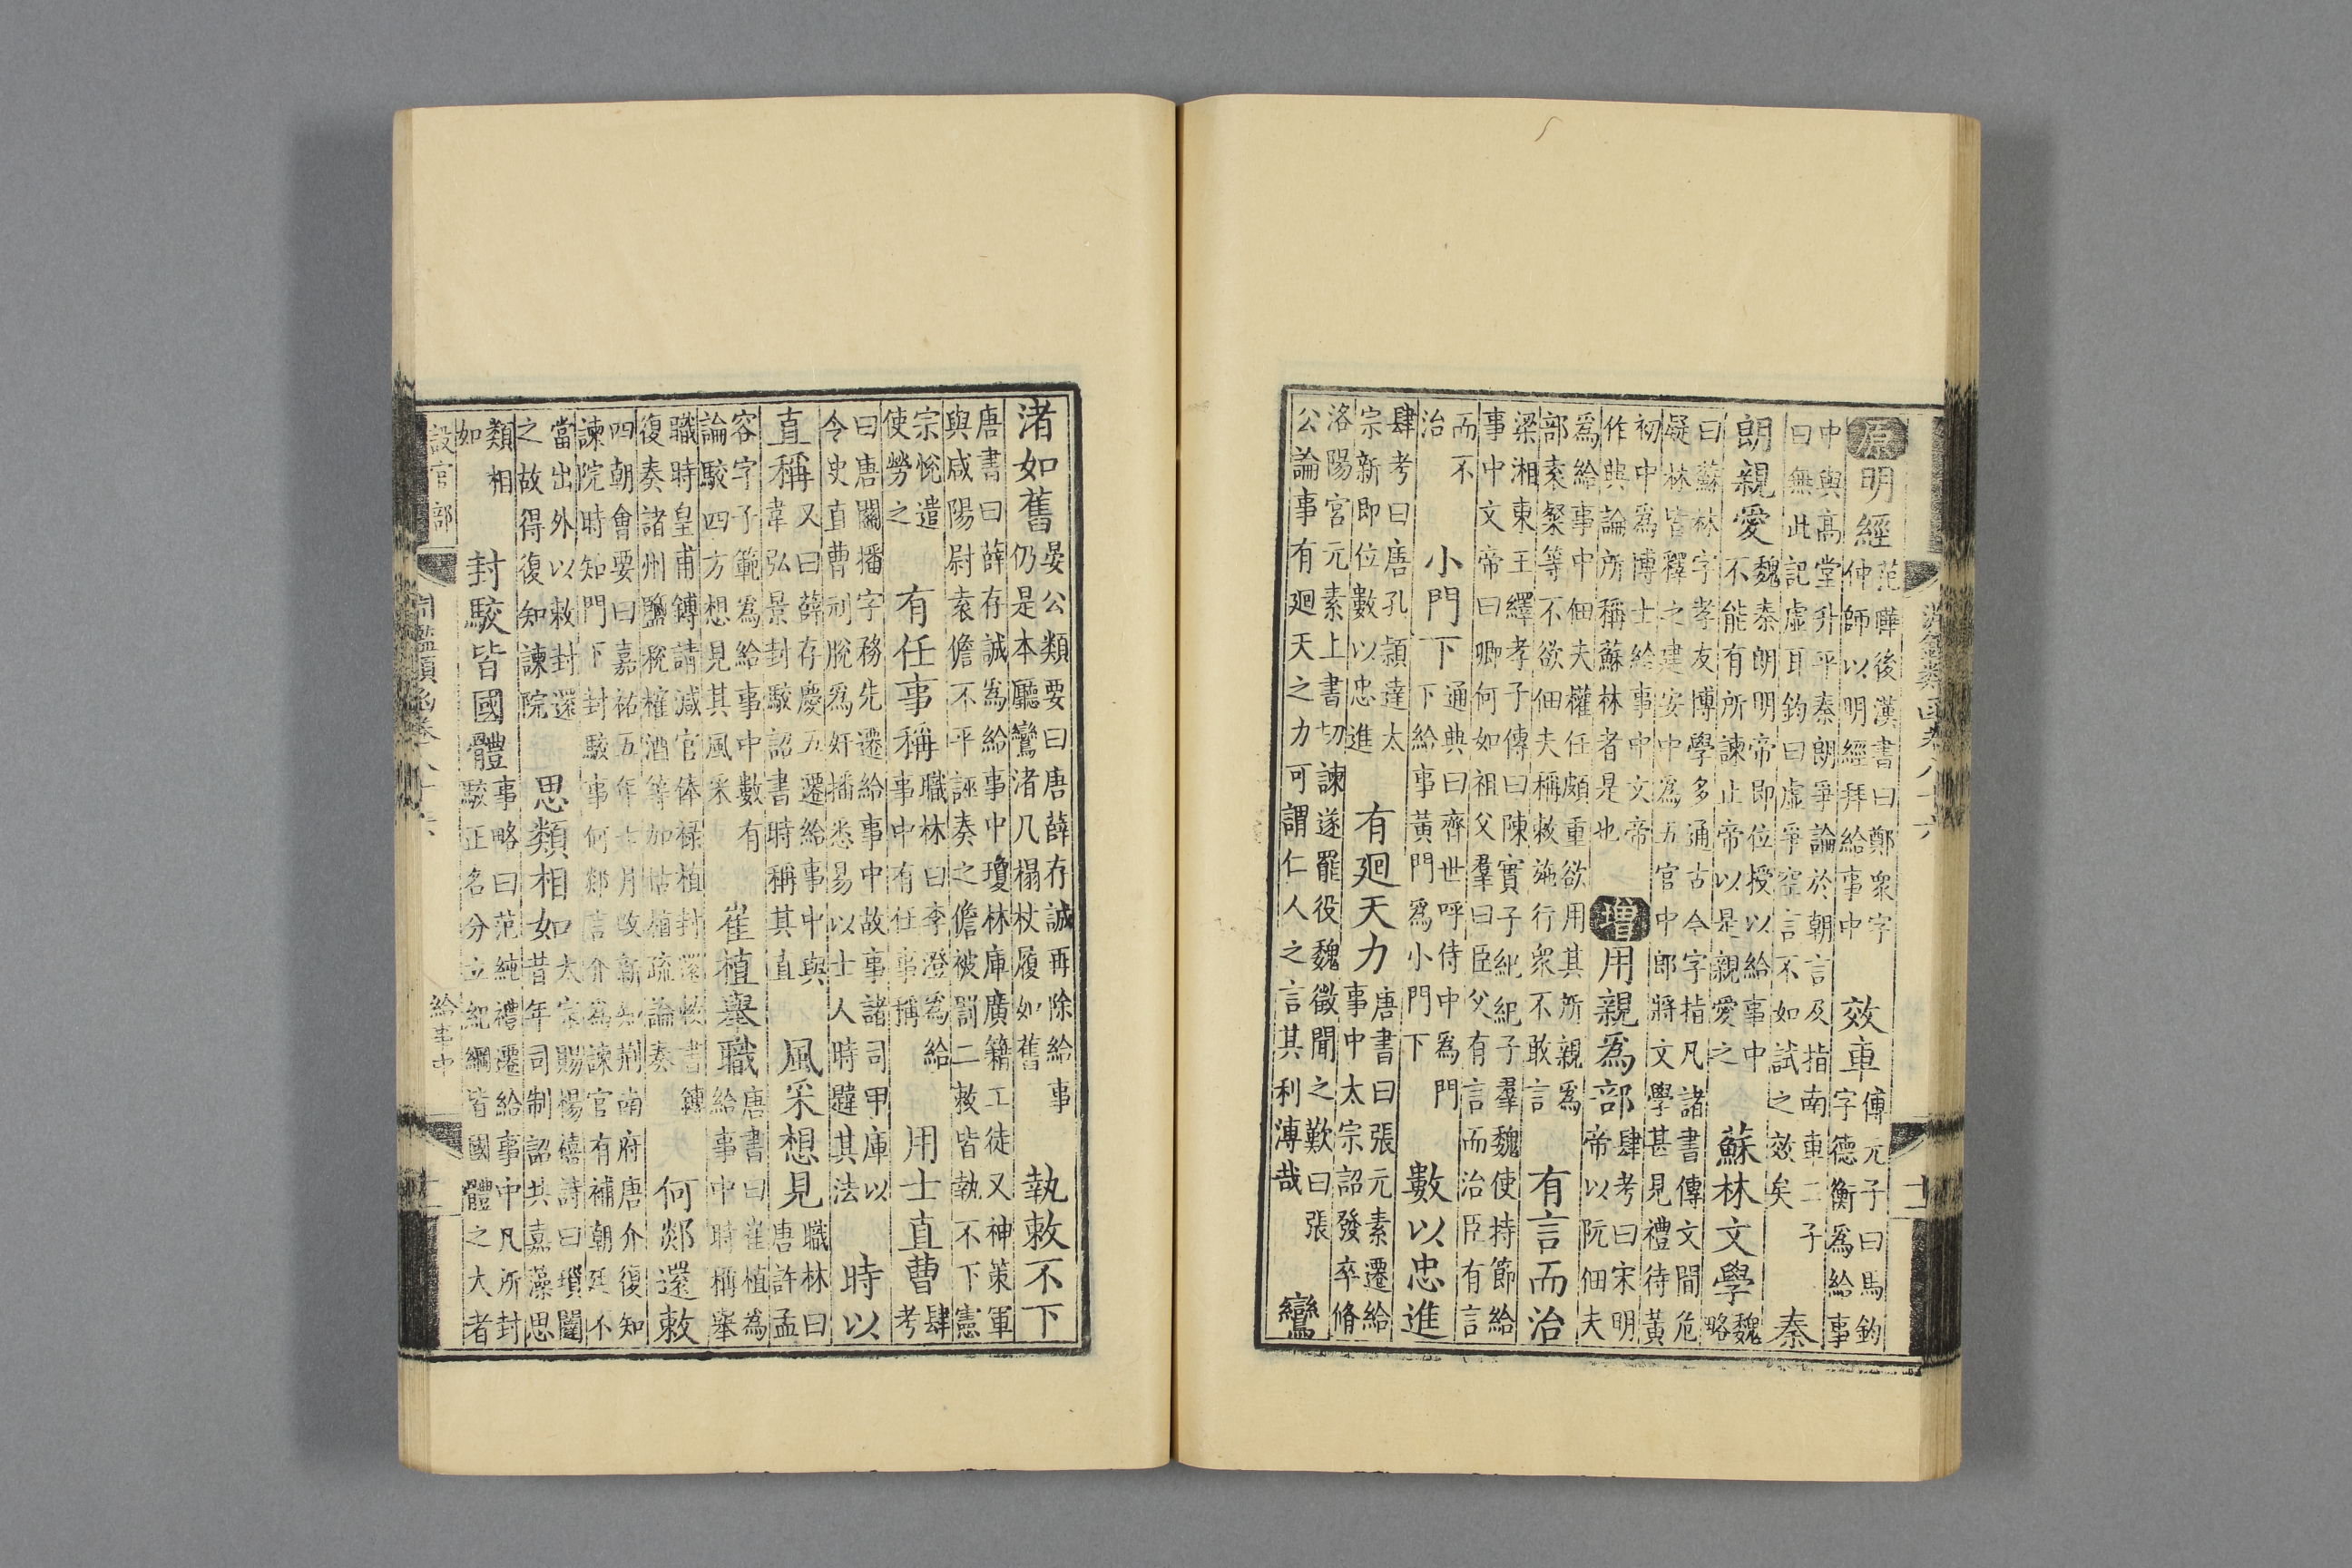 淵鑑類函卷八十六
原明經范曄後漢書曰鄭衆字仲師以明經拜給事中 效車傅元子曰馬鈞字德衡爲給事
中與高堂升平秦朗爭論於朝言及指南車二子曰無此記虛耳鈞曰虛爭空言不如試之效矣 秦
朗親愛魏秦朗明帝即位授以給事中不能有所諫止帝以是親愛之 蘇林文學魏略
曰蘇林字孝友博學多通古今字指凡諸書傳文間危疑林皆釋之建安中爲五官中郎將文學甚見禮待黃
初中爲博士給事中文帝作典論所稱蘇林者是也 增用親爲部肆考曰宋明帝以阮佃夫
爲給事中佃夫權任頗重欲用其所親爲部袁粲等不欲佃夫稱敕施行衆不敢言 有言而治
梁湘東王繹孝子傳曰陳實子紀紀子羣魏使持節給事中文帝曰卿何如祖父羣曰臣父有言而治臣有言
而不治 小門下通典曰齊世呼侍中爲門下給事黃門爲小門下 數以忠進
肆考曰唐孔穎達太宗新即位數以忠進 有廻天力唐書曰張元素遷給事中太宗詔發卒脩
洛陽宮元素上書切諫遂罷役魏徵聞之歎曰張公論事有廻天之力可謂仁人之言其利溥哉 鸞
渚如舊晏公類要曰唐薛存誠再除給事仍是本廳鸞渚几榻杖履如舊 執敕不下
唐書曰薛存誠爲給事中瓊林庫廣籍工徒又神策軍與咸陽尉袁儋不平誣奏之儋被罰二敕皆執不下憲
宗悅遣使勞之 有任事稱職林曰李澄爲給事中有任事稱 用士直曹肆考
曰唐關播字務先遷給事中故事諸司甲庫以令史直曹刓脫爲奸播悉易以士人時韙其法 時以
直稱又曰薛存慶五遷給事中與韋弘景封駁詔書時稱其直 風采想見職林曰唐許孟
容字子範爲給事中數有論駮四方想見其風采 崔植舉職唐書曰崔植爲給事中時稱舉
職時皇甫鎛請減官俸祿植封還敕書鎛復奏諸州鹽稅榷酒等加估植疏論奏 何郯還敕
四朝會要曰嘉祐五年七月改新知荆南府唐介復知諫院時知門下封駁事何郯言介爲諫官有補朝廷不
當出外以敕封還之故得復知諫院 思類相如太宗賜楊億詩曰瑣闥昔年司制詔共嘉藻思
類相如 封駁皆國體事略曰范純禮遷給事中凡所封駁正名分立紀綱皆國體之大者
設官部 淵鑑類函卷八十六 給事中